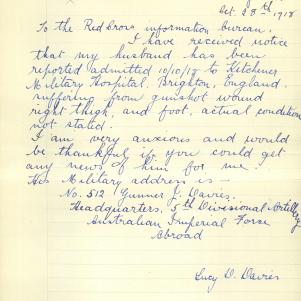 Oct. 28th, 1918
To the Red Cross information bureau.
I have received notice
that my husband has been
reported admitted 10/10/18 to Kitchener
Military Hospital. Brighton, England.
suffering from gunshot wound
right thigh, and foot, actual condition
not stated.
I am very anxious and would
be thankful if you could get
any news of him for me.
His Military address is —
No. 512 Gunner J. Davies.
Headquarters, 5th Divisional Artillery
Australian Imperial Force
Abroad
Lucy D. Davies